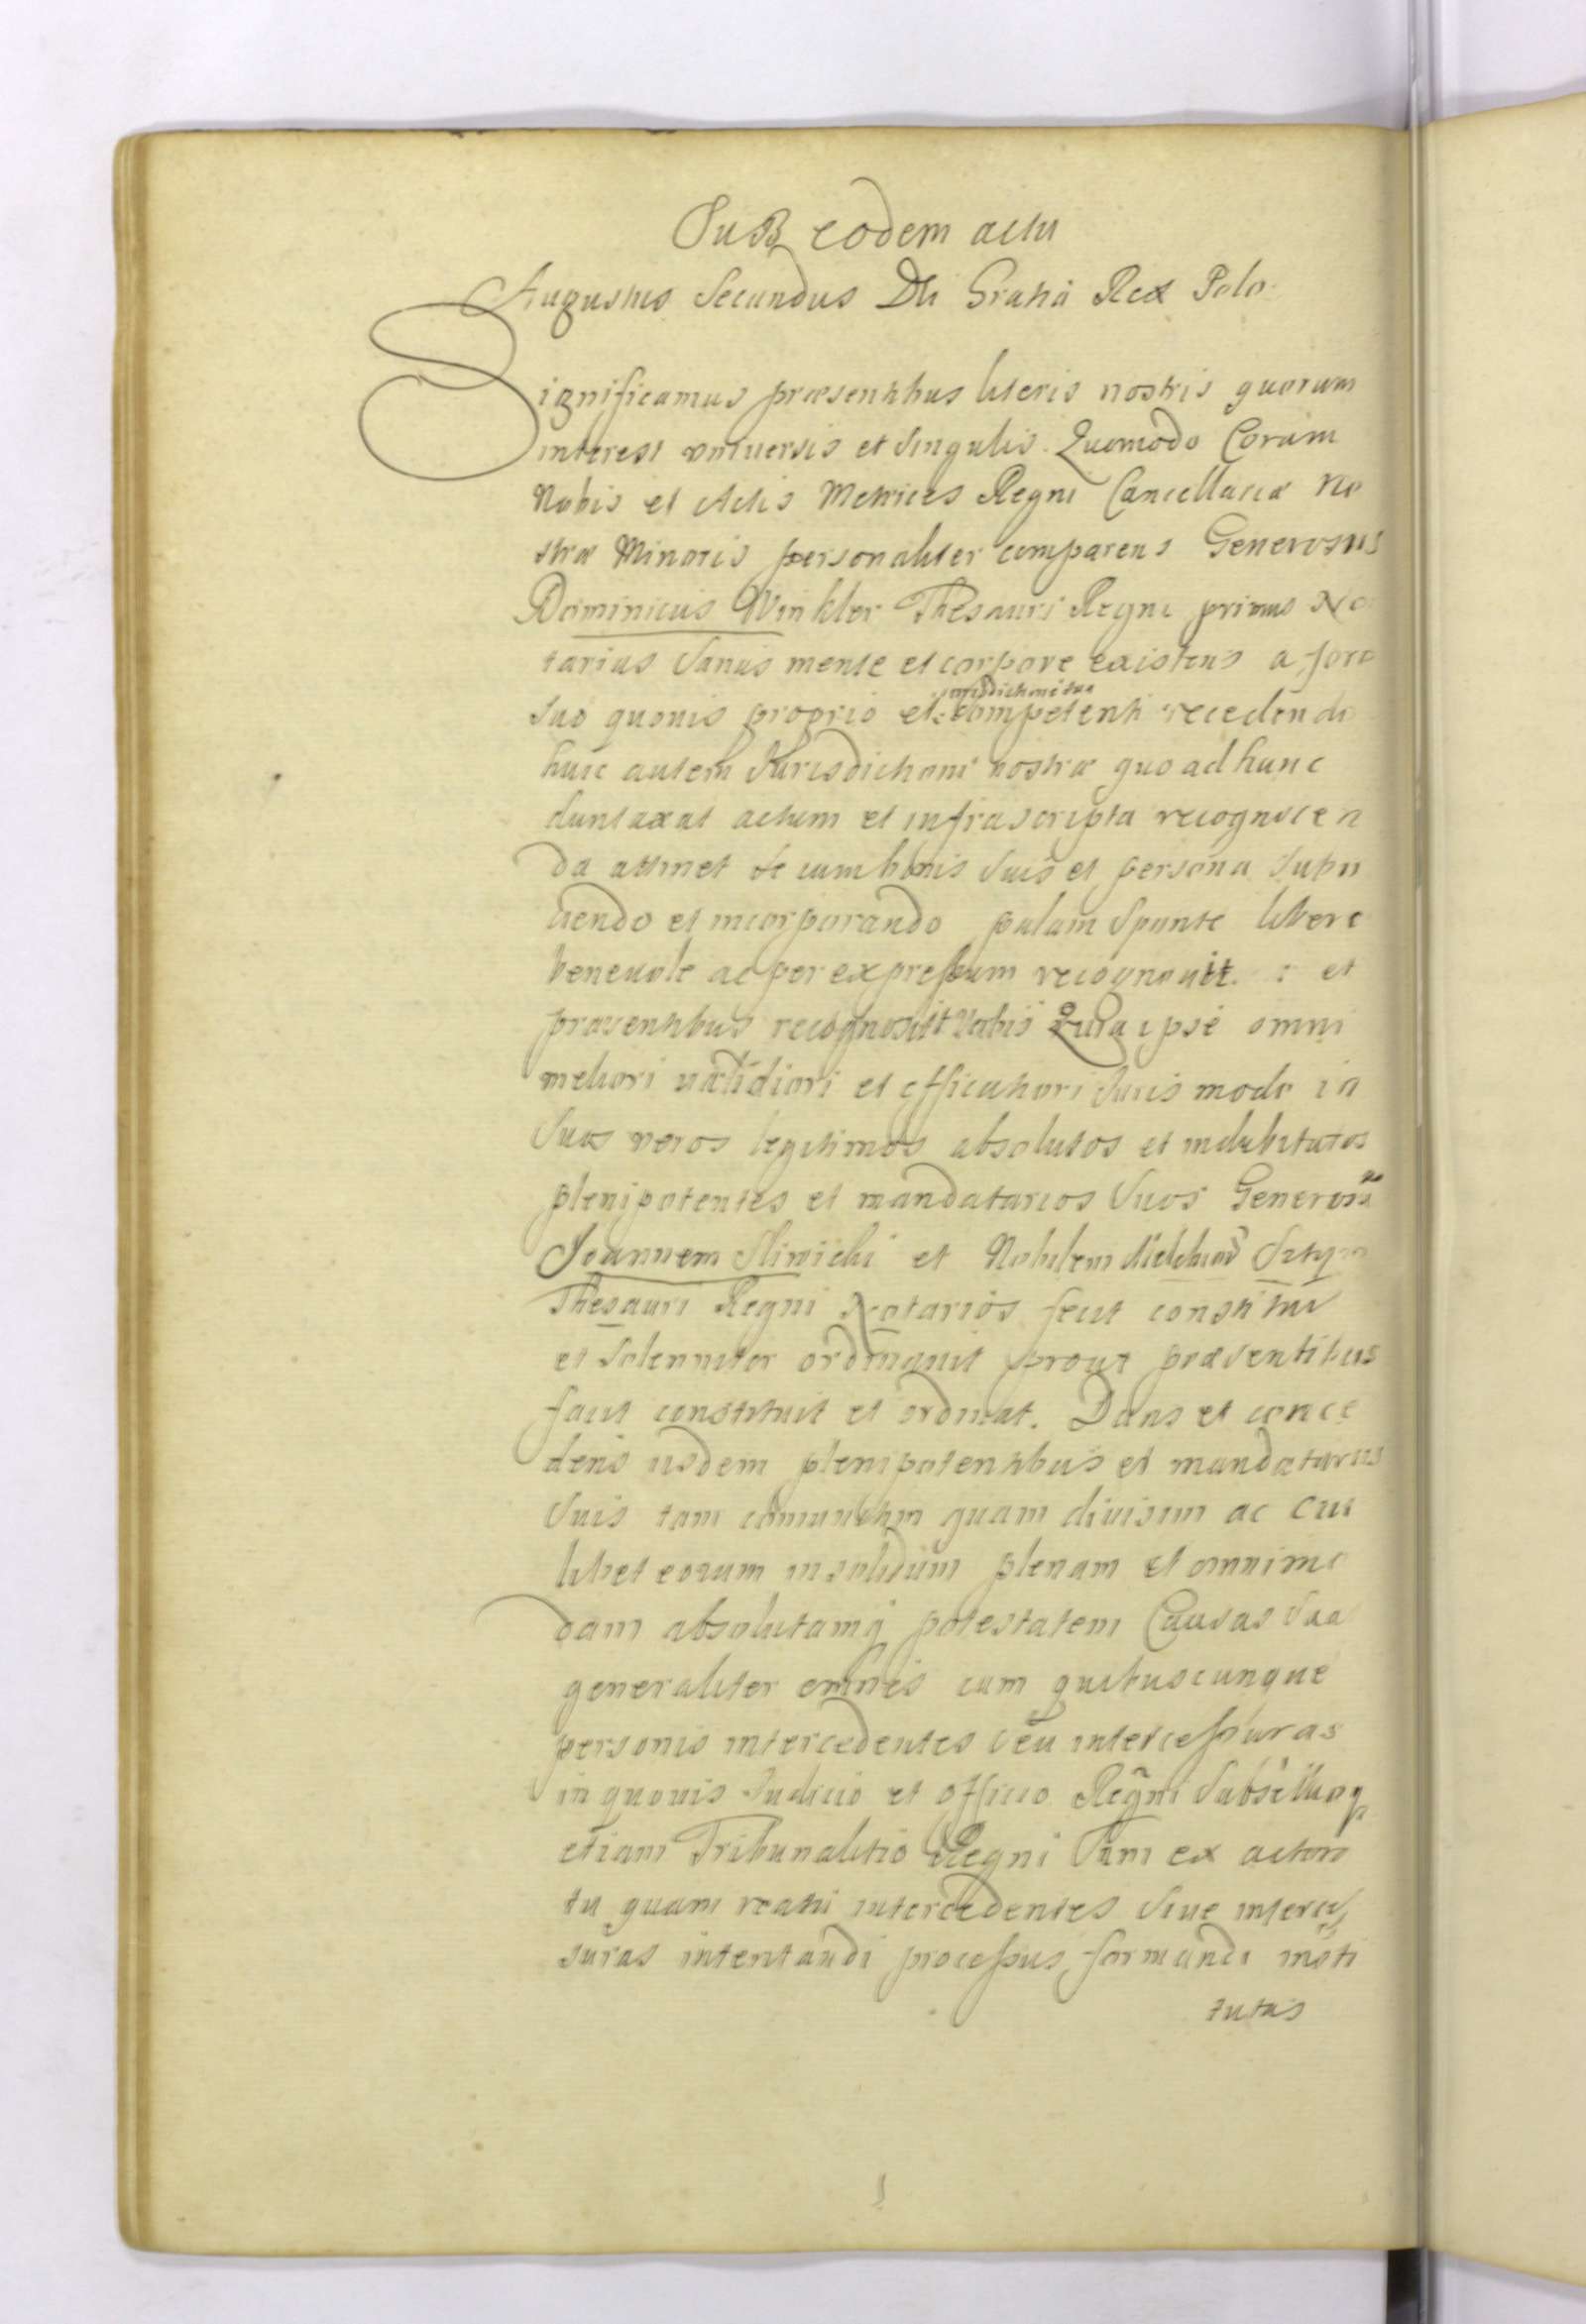 Sub eodem actu
Augustus Secundus Dei Gratia Rex Polo
Significamus præsentibus literis nostris quorum
interest universis et singulis. Quomodo Coram
Nobis et Actis Metrices Regni Cancellariæ No
stræ Minoris personaliter comparens Generosus
Dominicus Winkler Thesauri Regni primus No
tarius sanus mente et corpore existens a foro
jurisdictione sua
suo quovis proprio et competenti recedendo
huic autem Jurisdictioni nostræ quo ad hunc
duntaxat actum et infrascripta recognoscen
da attinet se cum bonis suis et persona subii
ciendo et incorporando palam sponte libere
benevole ac per expressum recognovit : et
præsentibus recognoscit Quia ipse omni
meliori validiori et efficatiori Juris modo in
suos veros legitimos absolutos et indubitatos
plenipotentes et mandatarios suos Generosū
Joannem Sliwicki et Nobilem
Thesauri Regni Notarios fecit constituit
et solenniter ordinavit prout præsentibus
facit constituit et ordinat. Dans et conce
dens iisdem plenipotentibus et mandatariis
suis tam coniunctim quam divisim ac cui
libet eorum in solidum plenam et omnimo
dam absolutamq potestatem Causas sua
generaliter omnes cum quibuscunque
personis intercedentes seu intercessuras
in quovis Judicio et officio Regni subselioq
etiam Tribunalitio Regni tam ex actora
tu quam reatu intercedentes sive interces
suras intentandi processus formandi insti
tutas